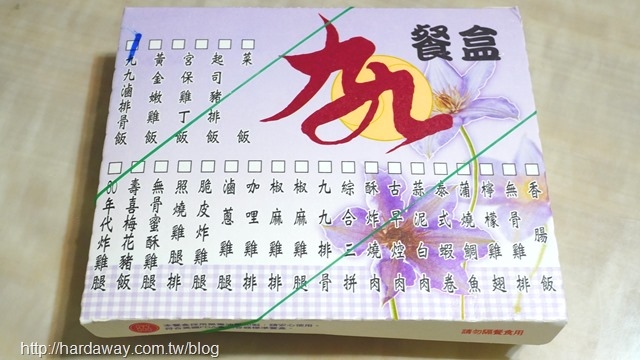 九九
餐盒
九九滷排骨飯
黃金嫩雞飯
宮保雞丁飯
起司豬排飯
菜飯
80年代炸雞腿
壽喜梅花豬飯
無骨蜜酥雞腿
照燒雞腿排
脆皮炸雞腿
滷蔥雞腿
咖哩雞排
椒麻雞腿
椒麻雞排
九九排骨
綜合三拼
酥炸燒肉
古早焢肉
蒜泥白肉
泰式蝦卷
蒲燒鯛魚
檸檬雞翅
無骨雞排
香腸飯
請勿隔餐食用
http://hardaway.com.tw/blog